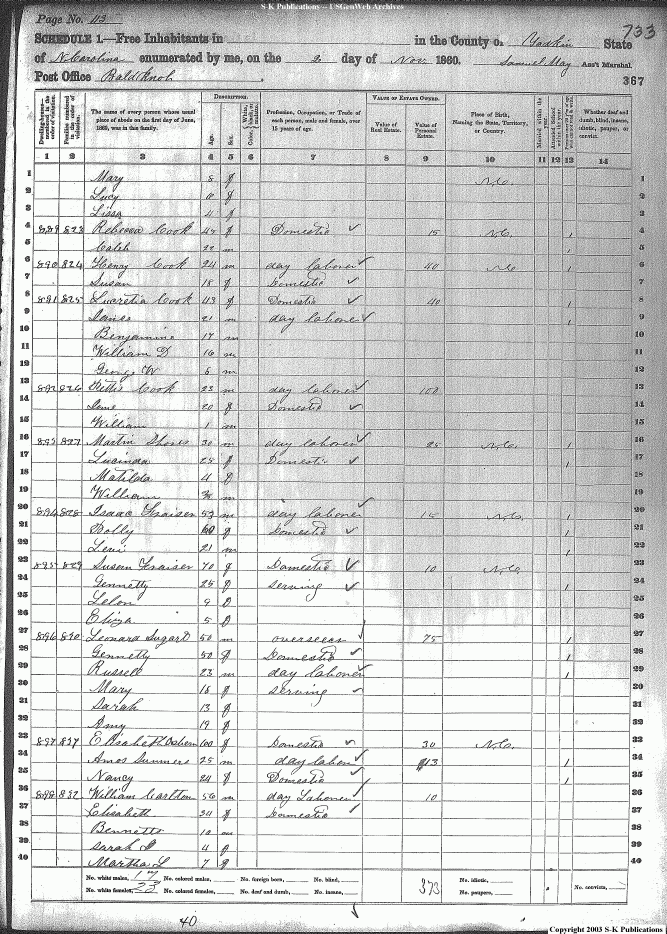 S-K Publications -- USGenWeb Archives
Page No. 113
733
SCHEDULE 1.—Free Inhabitants in in the County of Yadkin State
of N. Carolina enumerated by me, on the 2 day of Nov. 1860. Samuel May Ass't Marshal.
Post Office Baldknob 367
DESCRIPTION. VALUE OF ESTATE OWNED.
The name of every person whose usual place of abode on the first day of June, 1860, was in this family.
Age. Sex.
Profession, Occupation, or Trade of each person, male and female, over 15 years of age.
Value of Real Estate. Value of Personal Estate.
Place of Birth, Naming the State, Territory, or Country.
Whether deaf and dumb, blind, insane, idiotic, pauper, or convict.
1 2 3 4 5 6 7 8 9 10 11 12 13 14
1 Mary 8 f N.C. 1
2 Lucy f 2
3 Lissa 4 f 3
4 889 823 Rebecca Cook 47 f Domestic 15 N.C. 1 4
5 Caleb 22 m 1 5
6 890 824 Henry Cook 24 m day laborer 40 N.C. 1 6
7 Susan 18 f Domestic 7
8 891 825 Lucretia Cook 43 f Domestic 40 1 8
9 James 21 m day laborer 1 9
10 Benjamine 17 m 10
11 William D 16 m 11
12 George W m 12
13 892 826 Cook 23 m day laborer 100 1 13
14 20 f Domestic 14
15 William 1 m 15
16 893 827 Martin Shores 30 m day laborer 25 N.C. 1 16
17 Lucinda 25 f Domestic 1 17
18 Matilda 4 f 18
19 William m 19
20 894 828 Isaac 57 m day laborer 15 N.C. 1 20
21 Polly 60 f Domestic 1 21
22 Levi 21 m 1 22
23 895 829 Susan 70 f Domestic 10 N.C. 23
24 Gennetty 25 f serving 1 24
25 9 f 25
26 Eliza 5 f 26
27 896 830 Leonard Sugart 50 m overseer 75 1 27
28 Gennetty 50 f Domestic 1 28
29 Russell 23 m day laborer 1 29
30 Mary 18 f serving 30
31 Sarah 13 f 31
32 Amy 19 f 32
33 897 831 Elisabeth 100 f Domestic 30 N.C. 33
34 Amos Summers 25 m day labor 13 1 34
35 Nancy 24 f Domestic 1 35
36 898 832 William Carlton 56 m day Laborer 10 36
37 Elisabeth 34 f Domestic 37
38 Bennett 10 m 38
39 Sarah 4 f 39
40 Martha L 7 f 40
No. white males, 17 No. colored males, No. foreign born, No. blind, No. idiotic,
No. white females, 23 No. colored females, No. deaf and dumb, No. insane, 373 No. paupers, No. convicts,
40
Copyright 2003 S-K Publications